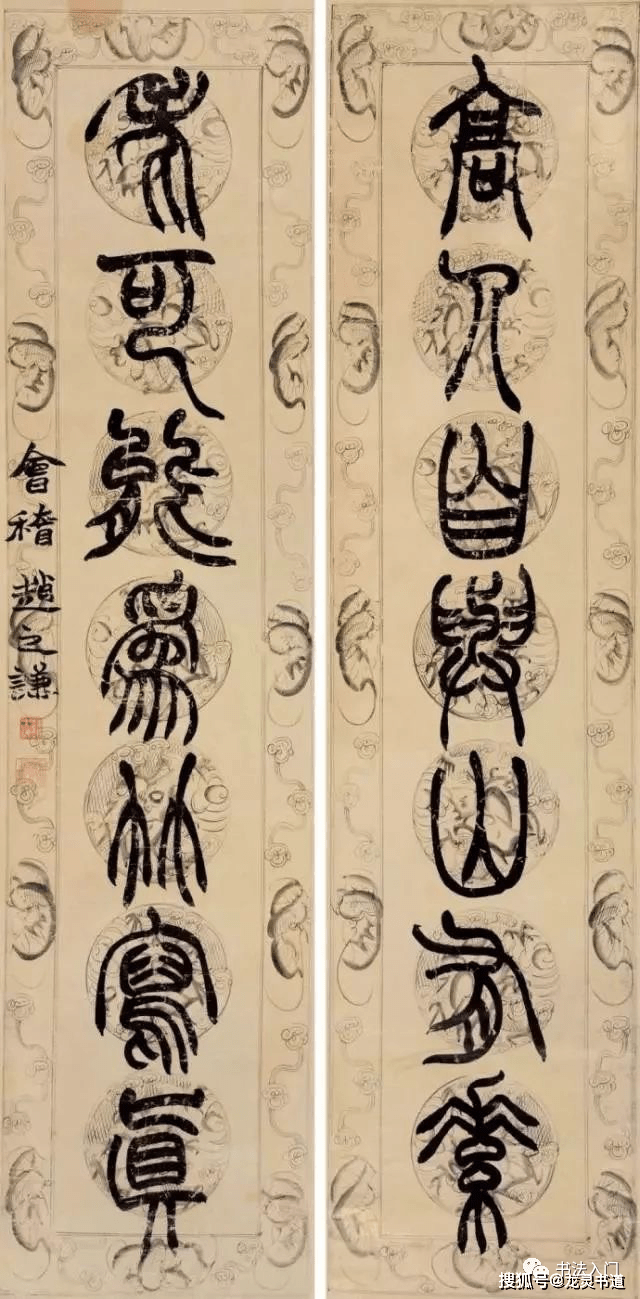 高人自與山有素
老可能為竹寫眞
會稽趙之謙
书法入门
搜狐号@龙灵书道